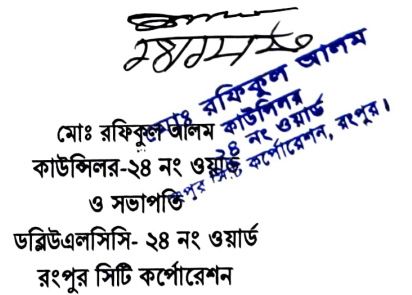 মোঃ রফিকুল আলম
কাউন্সিলর
২৪ নং ওয়ার্ড
রংপুর সিটি কর্পোরেশন, রংপুর।
মোঃ রফিকুল আলম
কাউন্সিলর-২৪ নং ওয়ার্ড
ও সভাপতি
ডব্লিউএলসিসি- ২৪ নং ওয়ার্ড
রংপুর সিটি কর্পোরেশন